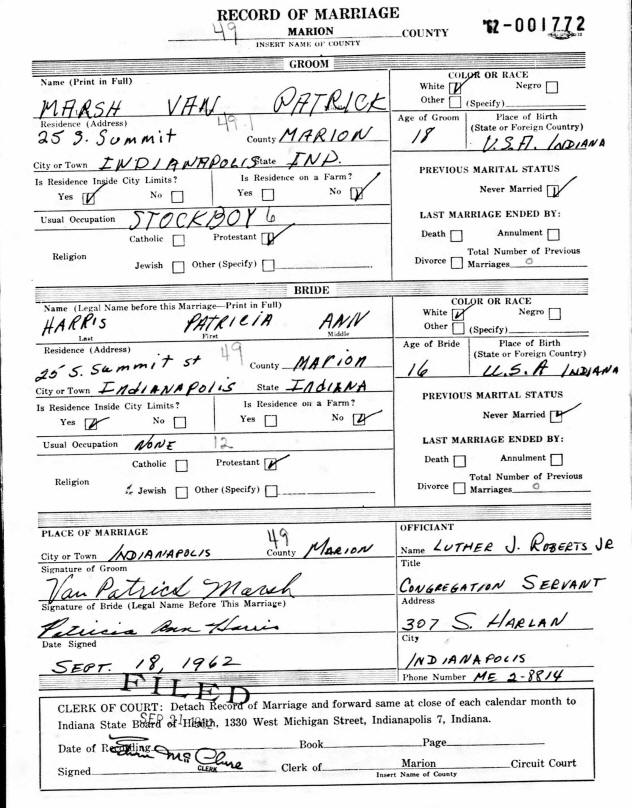 RECORD OF MARRIAGE
49 MARION COUNTY 62-001772
INSERT NAME OF COUNTY
GROOM
Name (Print in Full)
MARSH VAN PATRICK
COLOR OR RACE
White ☑ Negro ☐
Other ☐ (Specify)
Residence (Address)
25 S. Summit 49-1 County MARION
Age of Groom Place of Birth
(State or Foreign Country)
18 U.S.A. INDIANA
City or Town INDIANAPOLIS State IND.
Is Residence Inside City Limits? Is Residence on a Farm?
Yes ☑ No ☐ Yes ☐ No ☑
PREVIOUS MARITAL STATUS
Never Married ☑
Usual Occupation STOCKBOY 6
LAST MARRIAGE ENDED BY:
Death ☐ Annulment ☐
Religion Catholic ☐ Protestant ☑
Jewish ☐ Other (Specify) ☐
Total Number of Previous
Divorce ☐ Marriages 0
BRIDE
Name (Legal Name before this Marriage—Print in Full)
HARRIS PATRICIA ANN
Last First Middle
COLOR OR RACE
White ☑ Negro ☐
Other ☐ (Specify)
Residence (Address)
25 S. Summit st 49 County MARION
Age of Bride Place of Birth
(State or Foreign Country)
16 U.S.A INDIANA
City or Town INDIANAPOLIS State INDIANA
Is Residence Inside City Limits? Is Residence on a Farm?
Yes ☑ No ☐ Yes ☐ No ☑
PREVIOUS MARITAL STATUS
Never Married ☑
Usual Occupation NONE 12
LAST MARRIAGE ENDED BY:
Death ☐ Annulment ☐
Religion Catholic ☐ Protestant ☑
Jewish ☐ Other (Specify) ☐
Total Number of Previous
Divorce ☐ Marriages 0
PLACE OF MARRIAGE
City or Town INDIANAPOLIS 49 County MARION
Signature of Groom
Van Patrick Marsh
Signature of Bride (Legal Name Before This Marriage)
Patricia Ann Harris
Date Signed
SEPT. 18, 1962
OFFICIANT
Name LUTHER J. ROBERTS JR
Title
CONGREGATION SERVANT
Address
307 S. HARLAN
City
INDIANAPOLIS
Phone Number ME 2-8814
FILED
CLERK OF COURT: Detach Record of Marriage and forward same at close of each calendar month to
Indiana State Board of Health, 1330 West Michigan Street, Indianapolis 7, Indiana.
SEP
Date of Recording Book Page
Signed CLERK Clerk of Marion Circuit Court
Insert Name of County